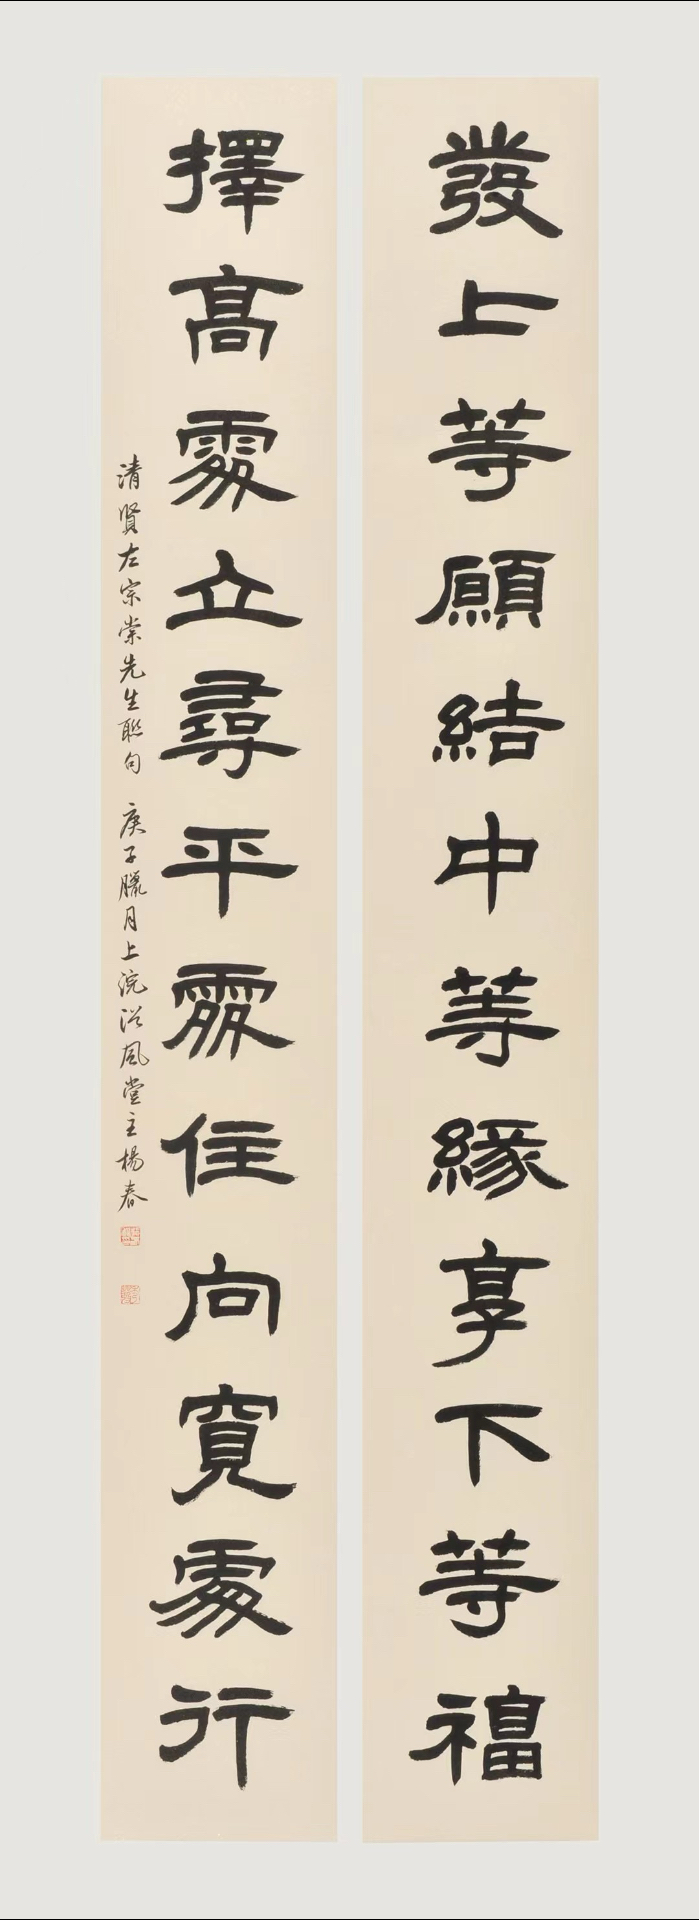 發上等願結中等緣享下等福
擇高處立尋平處住向寬處行
清贤左宗棠先生联句 庚子臘月上浣浴風堂主楊春